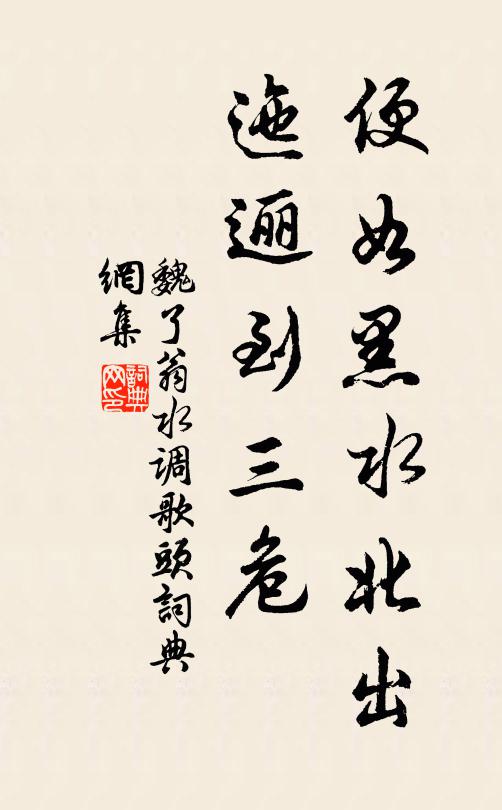 便如黑水北出
迤逦到三危
魏了翁水调歌頭詞典
網集
詞典
网印